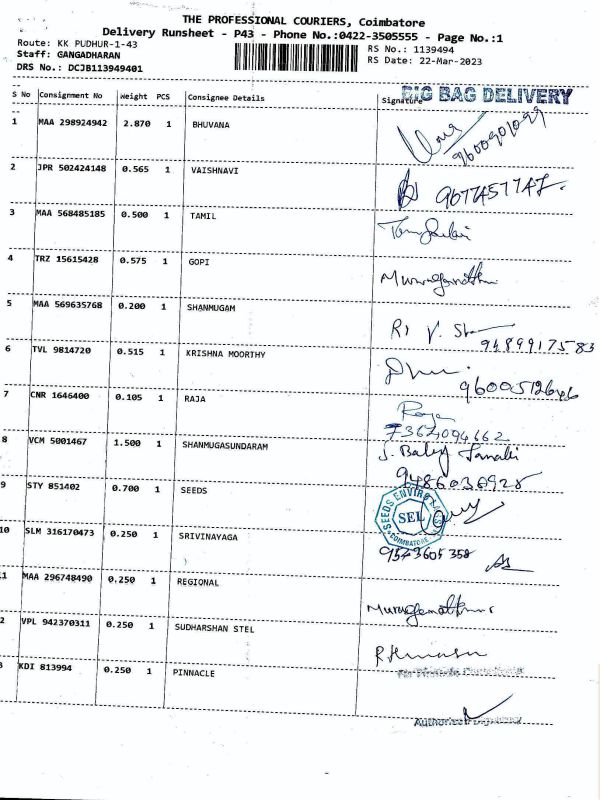 THE PROFESSIONAL COURIERS, Coimbatore
Delivery Runsheet - P43 - Phone No.:0422-3505555 - Page No.:1
Route: KK PUDHUR-1-43
RS No.: 1139494
Staff: GANGADHARAN
RS Date: 22-Mar-2023
DRS No.: DCJB113949401
BIG BAG DELIVERY
S No Consignment No Weight PCS Consignee Details Signature
1 MAA 298924942 2.870 1 BHUVANA
9600901099
2 JPR 502424148 0.565 1 VAISHNAVI
9677457747.
3 MAA 568485185 0.500 1 TAMIL
4 TRZ 15615428 0.575 1 GOPI
5 MAA 569635768 0.200 1 SHANMUGAM
9489917583
6 TVL 9814720 0.515 1 KRISHNA MOORTHY
9600512646
7 CNR 1646400 0.105 1 RAJA Raja
7364094662
8 VCM 5001467 1.500 1 SHANMUGASUNDARAM
9486036928
9 STY 851402 0.700 1 SEEDS
SEEDS ENVIRO
SEL
COIMBATORE
10 SLM 316170473 0.250 1 SRIVINAYAGA
9543605358
1 MAA 296748490 0.250 1 REGIONAL
2 VPL 942370311 0.250 1 SUDHARSHAN STEL
3 KDI 813994 0.250 1 PINNACLE